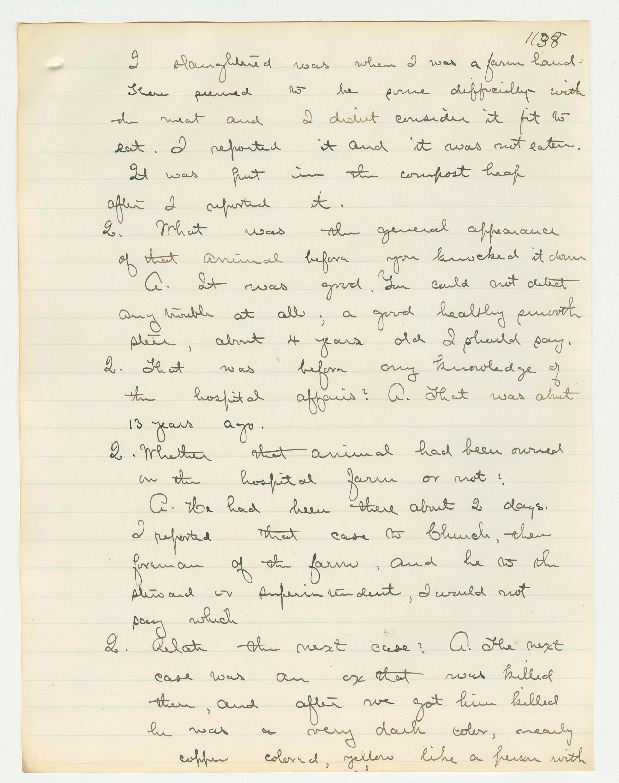 1138
I slaughtered was when I was a farm hand.
There seemed to be some difficulty with
the meat and I didnt consider it fit to
eat. I reported it and it was not eaten.
It was put in the compost heap
after I reported it.
Q. What was the general appearance
of that animal before you knocked it down
A. It was good. You could not detect
any trouble at all; a good healthy smooth
steer, about 4 years old I should say.
Q. That was before any knowledge of
the hospital affairs? A. That was about
13 years ago.
Q. Whether that animal had been owned
on the hospital farm or not?
A. He had been there about 2 days.
I reported that case to Church, then
foreman of the farm, and he to the
steward or superintendent, I would not
say which
Q. Relate the next case? A. The next
case was an ox that was killed
then, and after we got him killed
he was a very dark color, nearly
copper colored, yellow like a person with